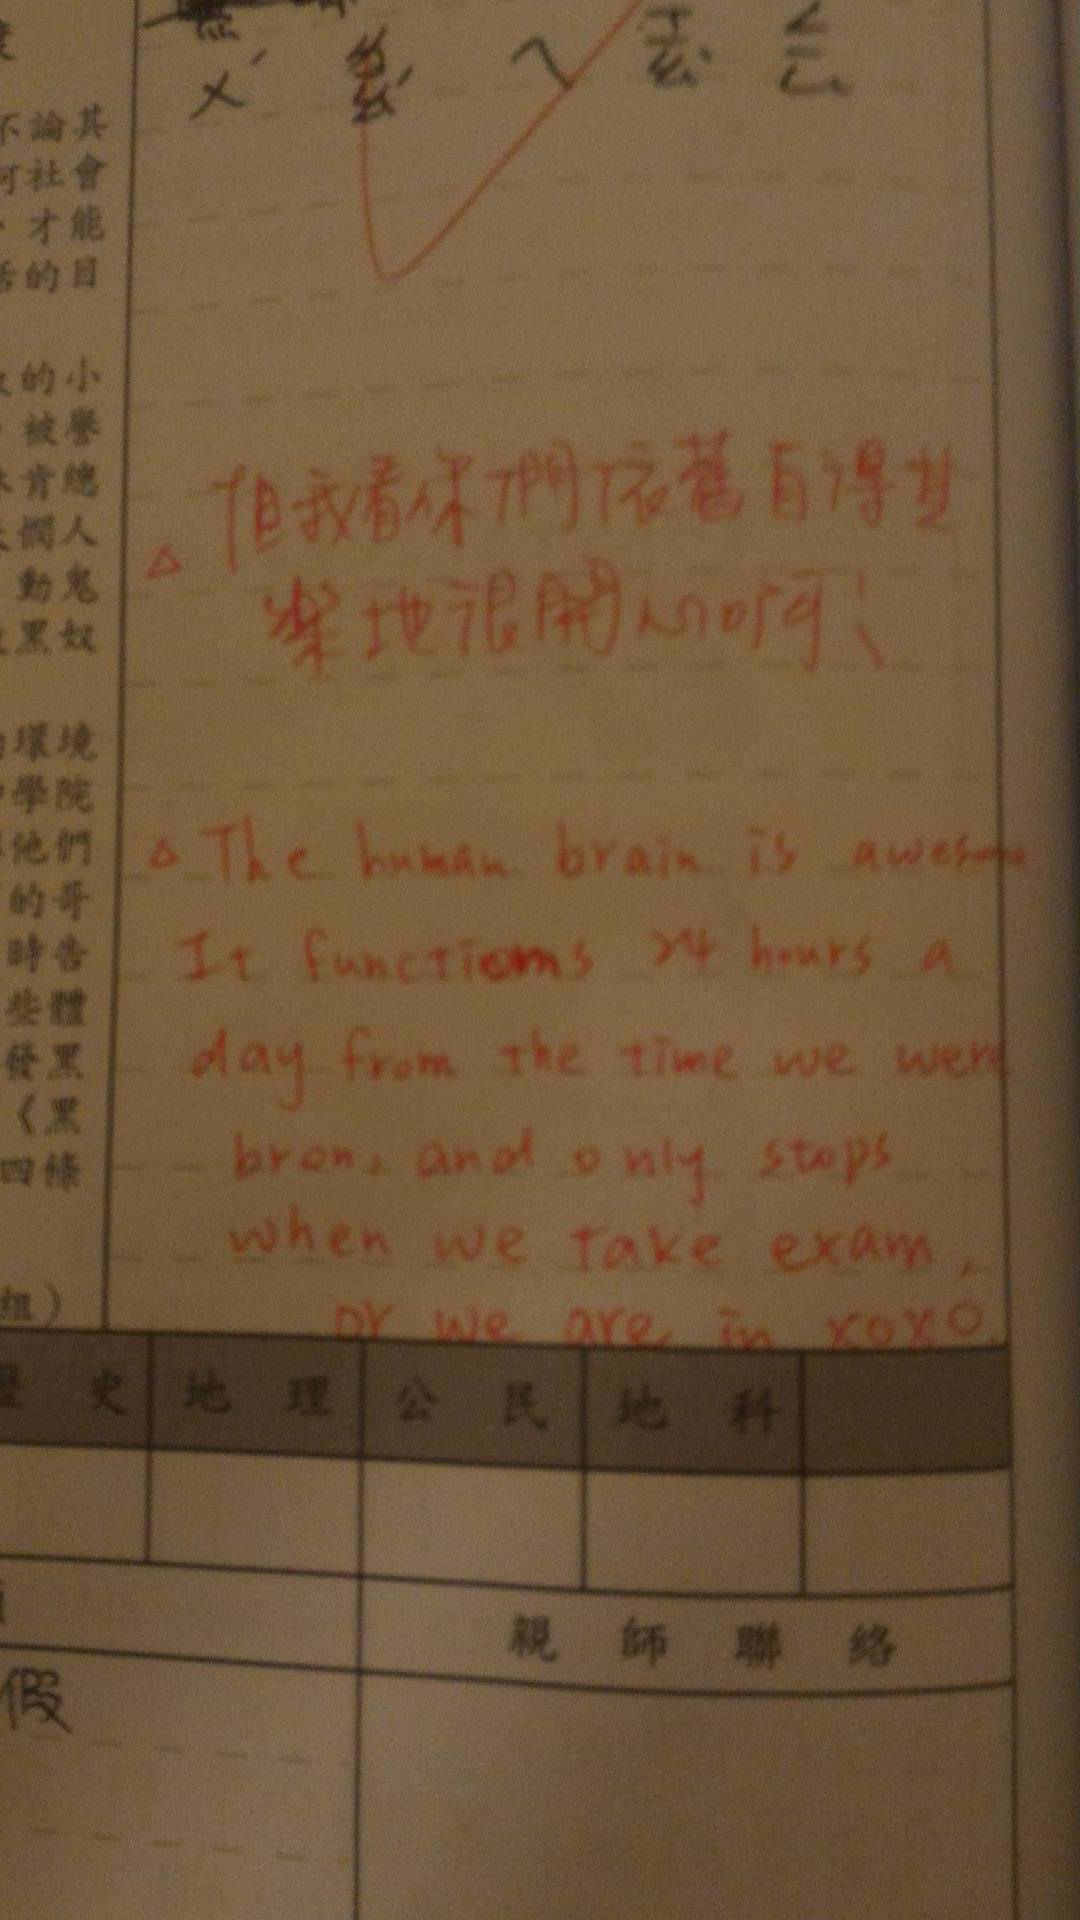 不論其
社會
才能
的目
的小
被譽
肯總
憫人
動鬼
黑奴
環境
學院
他們
的哥
時告
些體
發黑
《黑
四條
組）
但我看你們依舊自得其
樂地很開心啊！
△ The human brain is awesome
It functions 24 hours a
day from the time we were
bron, and only stops
when we take exam,
or we are in xoxo.
史 地理 公民 地科
親師聯絡
假